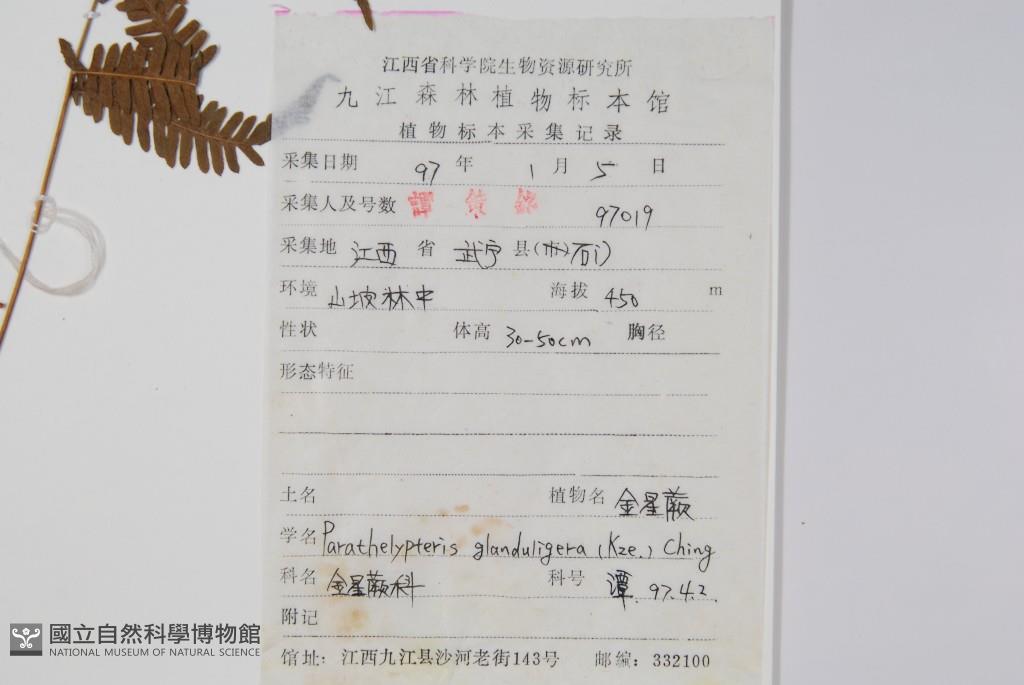 江西省科学院生物资源研究所
九江森林植物标本馆
植物标本采集记录
采集日期 97 年 1 月 5 日
采集人及号数 譚 97019
采集地 江西 省 武宁 县(市)石门
环境 山坡林中 海拔 450 m
性状 体高 30-50cm 胸径
形态特征
土名 植物名 金星蕨
学名 Parathelypteris glanduligera (Kze.) Ching
科名 金星蕨科 科号 潭 97.4.2.
附记
馆址: 江西九江县沙河老街143号 邮编: 332100
國立自然科學博物館
NATIONAL MUSEUM OF NATURAL SCIENCE